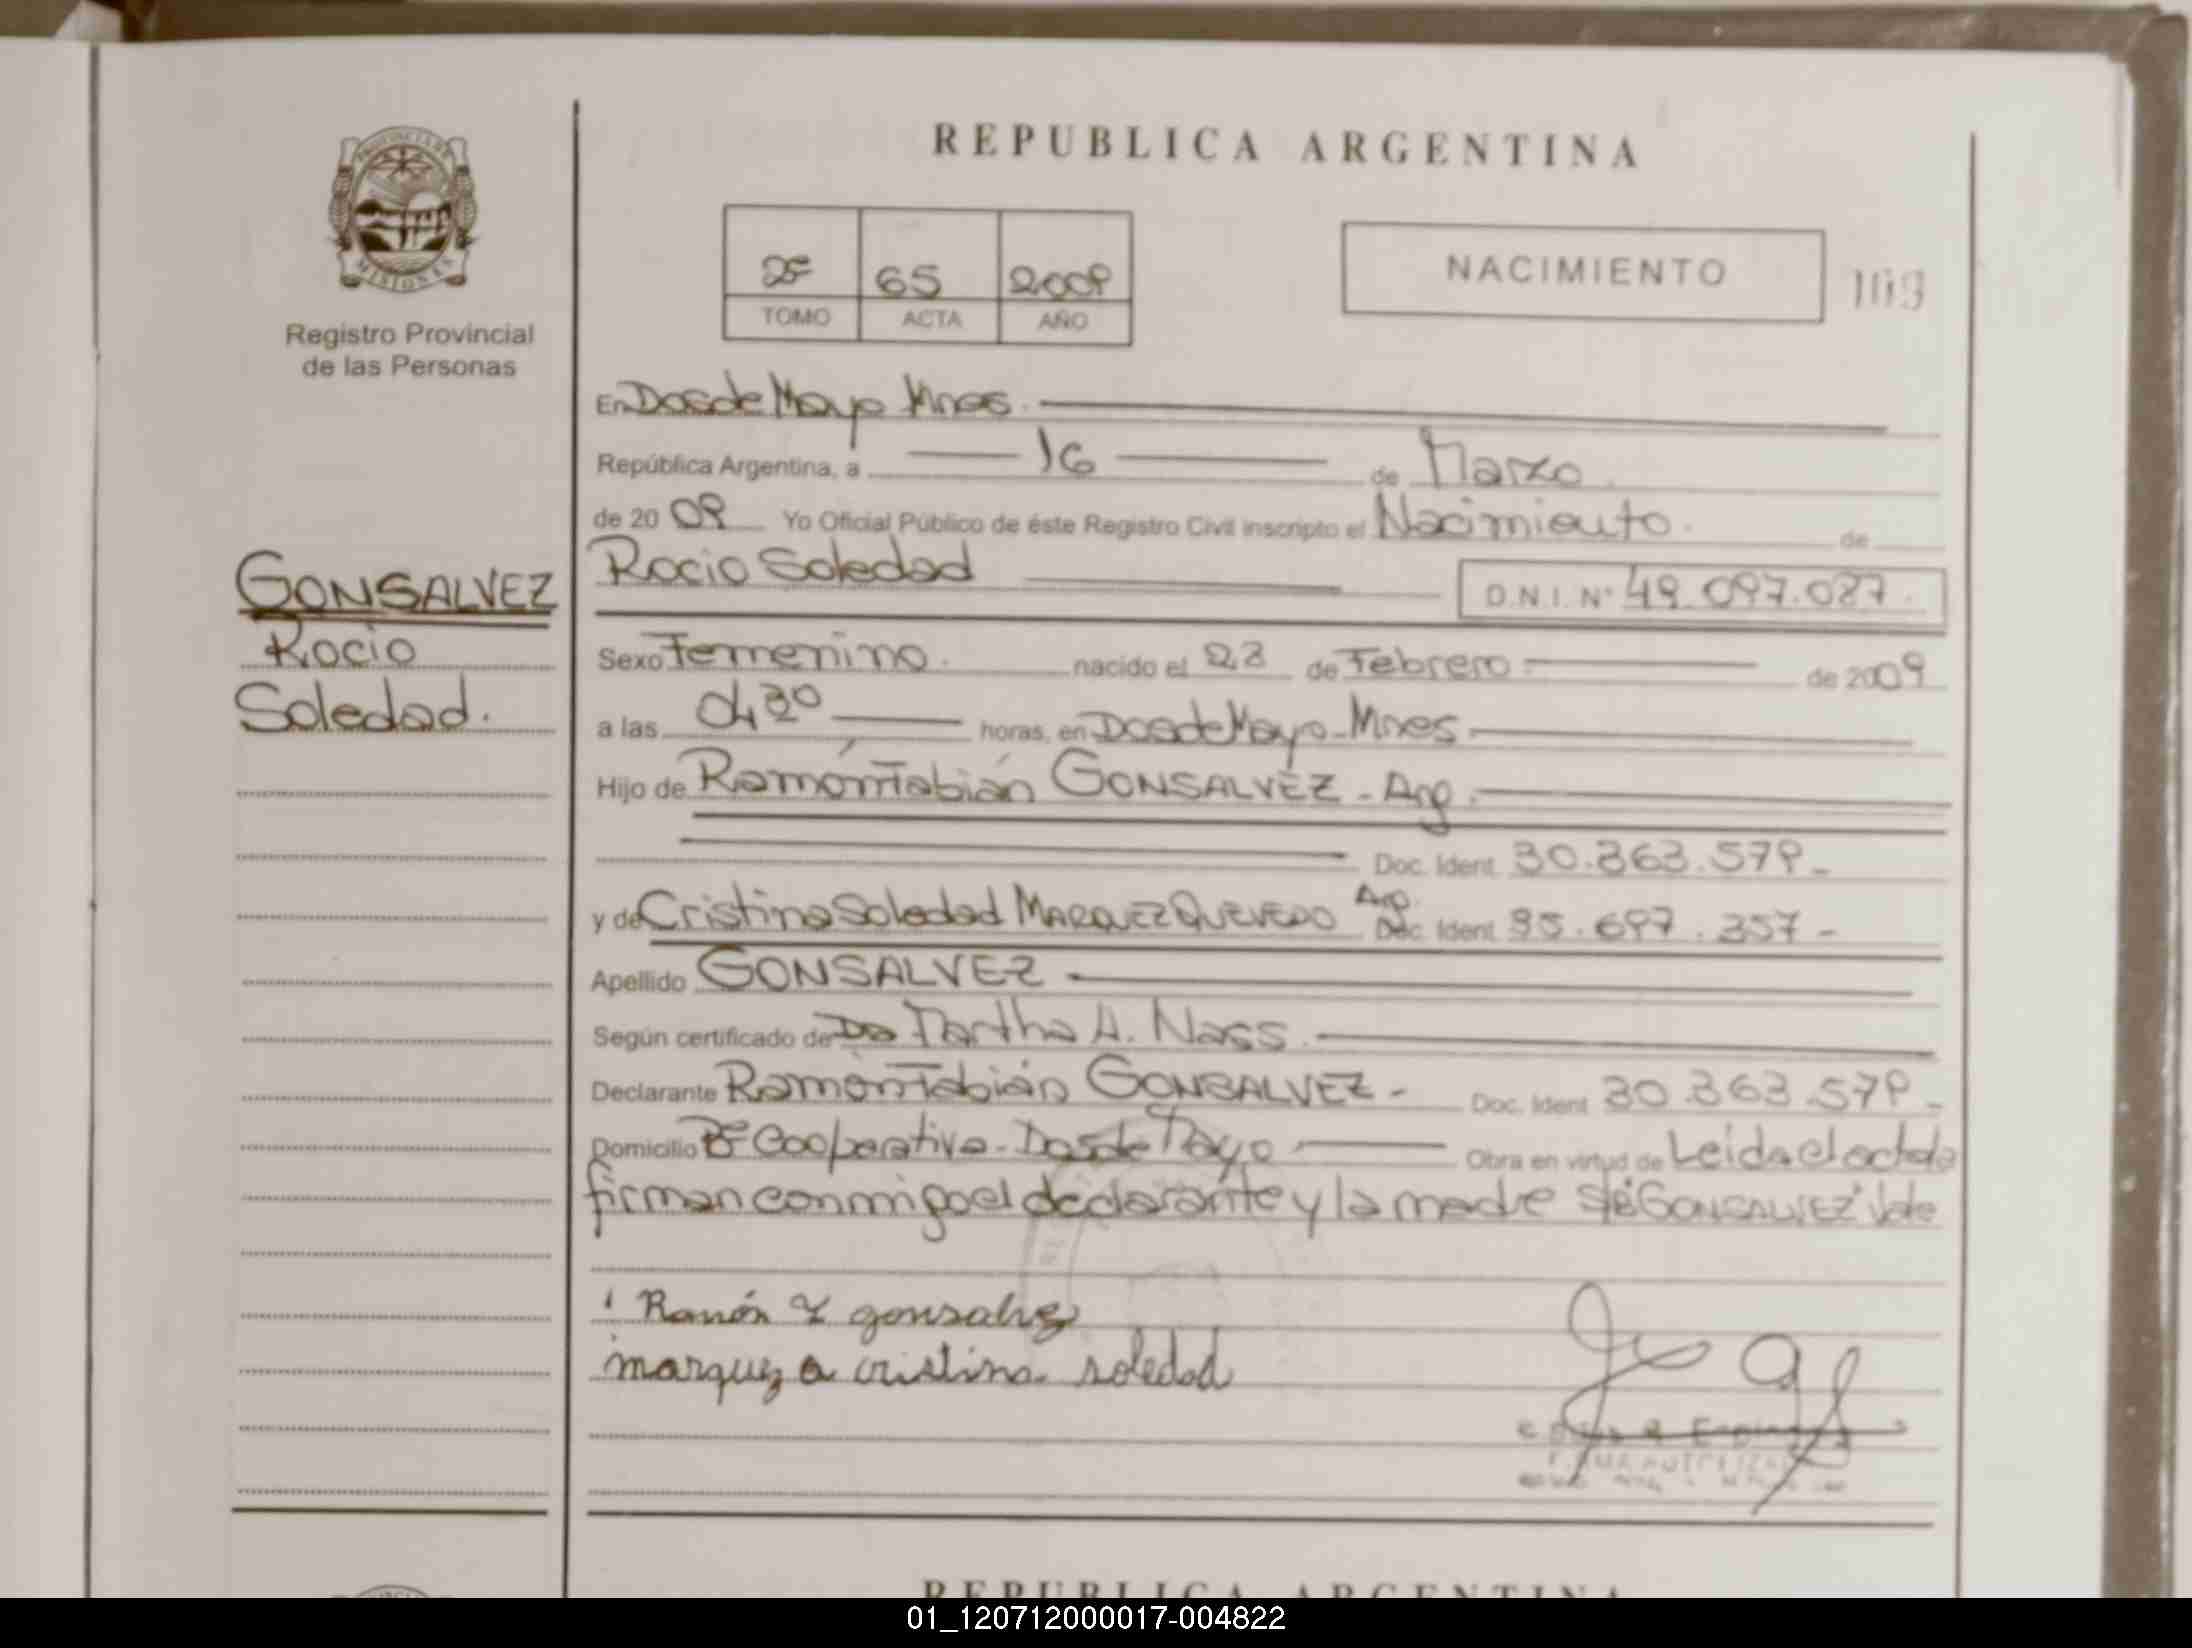 REPUBLICA ARGENTINA
PROVINCIA DE
MISIONES
Registro Provincial
de las Personas
2º 65 2009
TOMO ACTA AÑO
NACIMIENTO
En Dos de Mayo Mnes.
República Argentina, a 16 de Marzo.
de 2009 Yo Oficial Público de éste Registro Civil inscripto el Nacimiento. de
GONSALVEZ
Rocio
Soledad.
Rocio Soledad D.N.I. Nº 49.097.087.
Sexo Femenino. nacido el 23 de Febrero de 2009
a las 04 30 horas, en Dos de Mayo - Mnes
Hijo de Ramón Fabián GONSALVEZ - Arg.
Doc. Ident. 30.363.579 -
y de Cristina Soledad MARQUEZ QUEVEDO Arg. Doc. Ident. 95.697.357 -
Apellido GONSALVEZ
Según certificado de Da Martha A. Nass.
Declarante Ramón Fabián GONSALVEZ - Doc. Ident 30.363.579 -
Domicilio Bº Cooperativa - Dos de Mayo Obra en virtud de Leida el acta la
firman conmigo el declarante y la madre S/R "GONSALVEZ" Vale
Ramón F gonsalvez
marquez cristina soledad
01_120712000017-004822